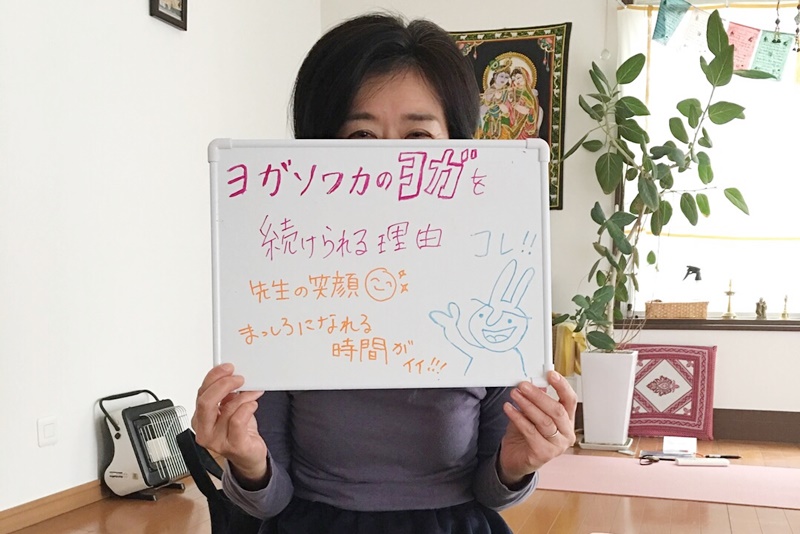 ヨガソワカのヨガを
続けられる理由
コレ!!
先生の笑顔
まっしろになれる
時間が
イイ!!!